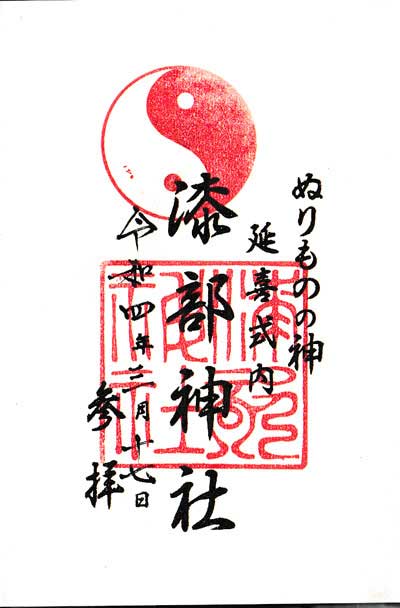 ぬりものの神
延喜式内
漆部神社
令和四年三月十七日
参拝